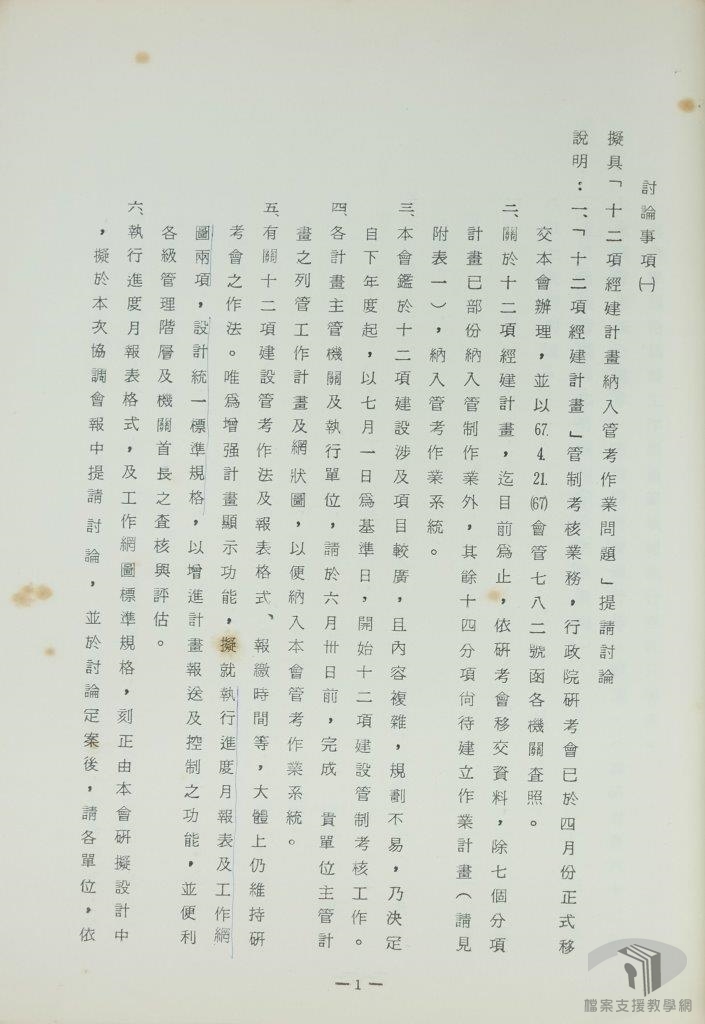 討論事項㈠
擬具「十二項經建計畫納入管考作業問題」提請討論
說明：一、「十二項經建計畫」管制考核業務，行政院研考會已於四月份正式移
交本會辦理，並以67.4.21.(67)會管七八二號函各機關查照。
二、關於十二項經建計畫，迄目前為止，依研考會移交資料，除七個分項
計畫已部份納入管制作業外，其餘十四分項尚待建立作業計畫（請見
附表一），納入管考作業系統。
三、本會鑑於十二項建設涉及項目較廣，且內容複雜，規劃不易，乃決定
自下年度起，以七月一日為基準日，開始十二項建設管制考核工作。
四、各計畫主管機關及執行單位，請於六月卅日前，完成 貴單位主管計
畫之列管工作計畫及網狀圖，以便納入本會管考作業系統。
五、有關十二項建設管考作法及報表格式、報繳時間等，大體上仍維持研
考會之作法。唯為增强計畫顯示功能，擬就執行進度月報表及工作網
圖兩項，設計統一標準規格，以增進計畫報送及控制之功能，並便利
各級管理階層及機關首長之查核與評估。
六、執行進度月報表格式，及工作網圖標準規格，刻正由本會研擬設計中
，擬於本次協調會報中提請討論，並於討論定案後，請各單位，依
—1—
檔案支援教學網